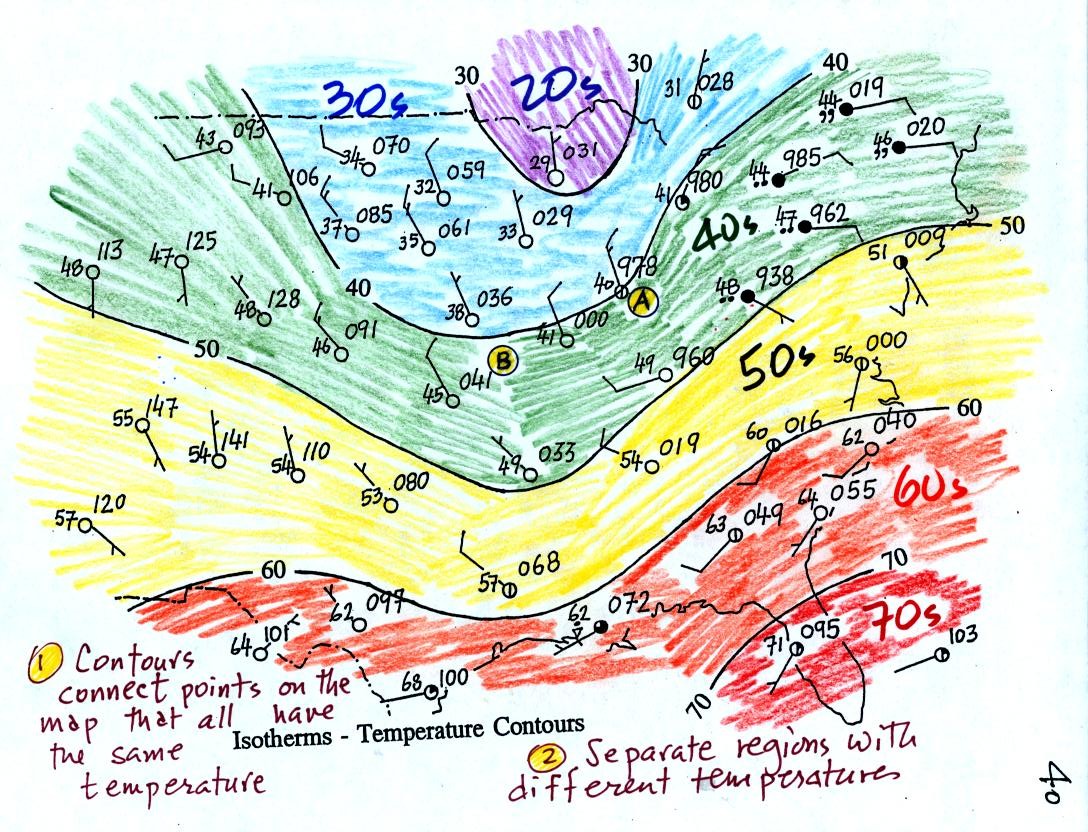 30
30
40
31 028
30s
20s
44 019
43 093
34 070
29 031
46 020
41 106
32 059
44 985
37 085
35 061
33 029
41 980
40s
47 962
50
48 113
47 125
48 128
40
38 036
40 978
A
48 938
51 009
46 091
41 000
50
B
45 041
49 960
50s
56 000
55 147
54 141
54 110
53 080
49 033
54 019
60 016
62 040
60
57 120
57 068
63 049
64 055
60s
60
70
62 097
62 072
70s
64 101
68 100
71 095
103
70
1 Contours
connect points on the
map that all have
the same
temperature
Isotherms - Temperature Contours
2 Separate regions with
different temperatures
40